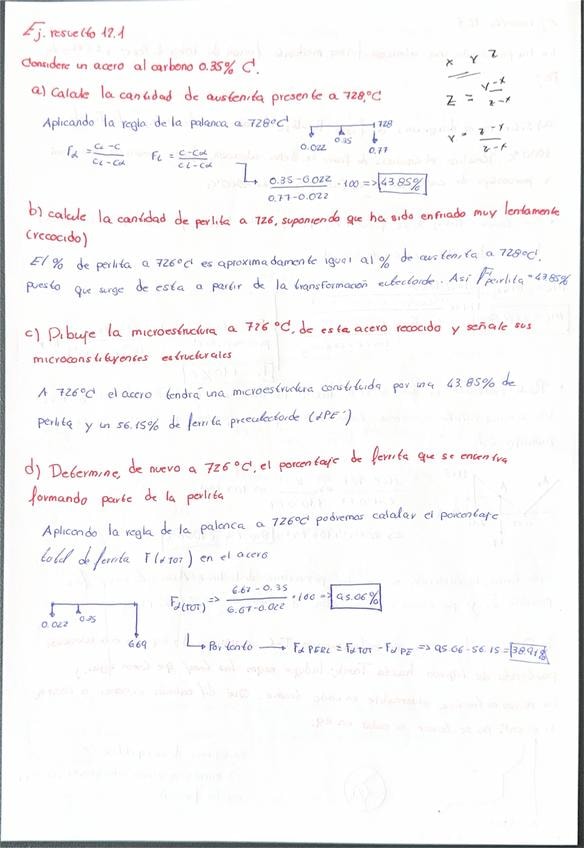 Ej. resuelto 12.1
Considere un acero al carbono 0.35% C.
a) Calcule la cantidad de austenita presente a 728,ºC
Aplicando la regla de la palanca a 728ºC
728
0.022 0.35 0.77
Fα = CL-C / CL-Cα FL = C-Cα / CL-Cα
0.35-0.022 / 0.77-0.022 · 100 => 43.85%
X Y Z
Z = Y-X / Z-X
Y = Z-Y / Z-X
b) calcule la cantidad de perlita a 726, suponiendo que ha sido enfriado muy lentamente
(recocido)
El % de perlita a 726ºC es aproximadamente igual al % de austenita a 728ºC,
puesto que surge de esta a partir de la transformación eutectoide. Así Fperlita = 43.85%
c) Dibuje la microestructura a 726 ºC, de este acero recocido y señale sus
microconstituyentes estructurales
A 726ºC el acero tendrá una microestructura constituida por una 43.85% de
perlita y un 56.15% de ferrita preeutectoide (αPE)
d) Determine, de nuevo a 726ºC, el porcentaje de ferrita que se encentra
formando parte de la perlita
Aplicando la regla de la palanca a 726ºC podremos calcular el porcentaje
total de ferrita F(α TOT) en el acero
0.022 0.35
6.69
Fα(TOT) => 6.67-0.35 / 6.67-0.022 · 100 => 95.06%
Por tanto → Fα PERL = Fα TOT - Fα PE => 95.06-56.15 = 38.91%